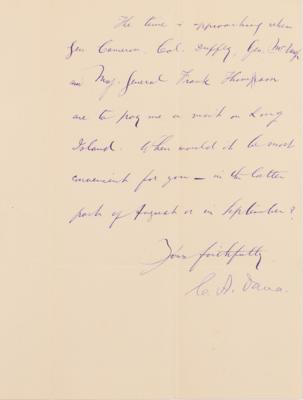 The time is approaching when
Gen Cameron, Col. Duffy, Gen.
and Maj. General Frank Thompson
are to pay me a visit on Long
Island. When would it be most
convenient for you — in the latter
part of August or in September?
Yours faithfully
C. A. Dana.